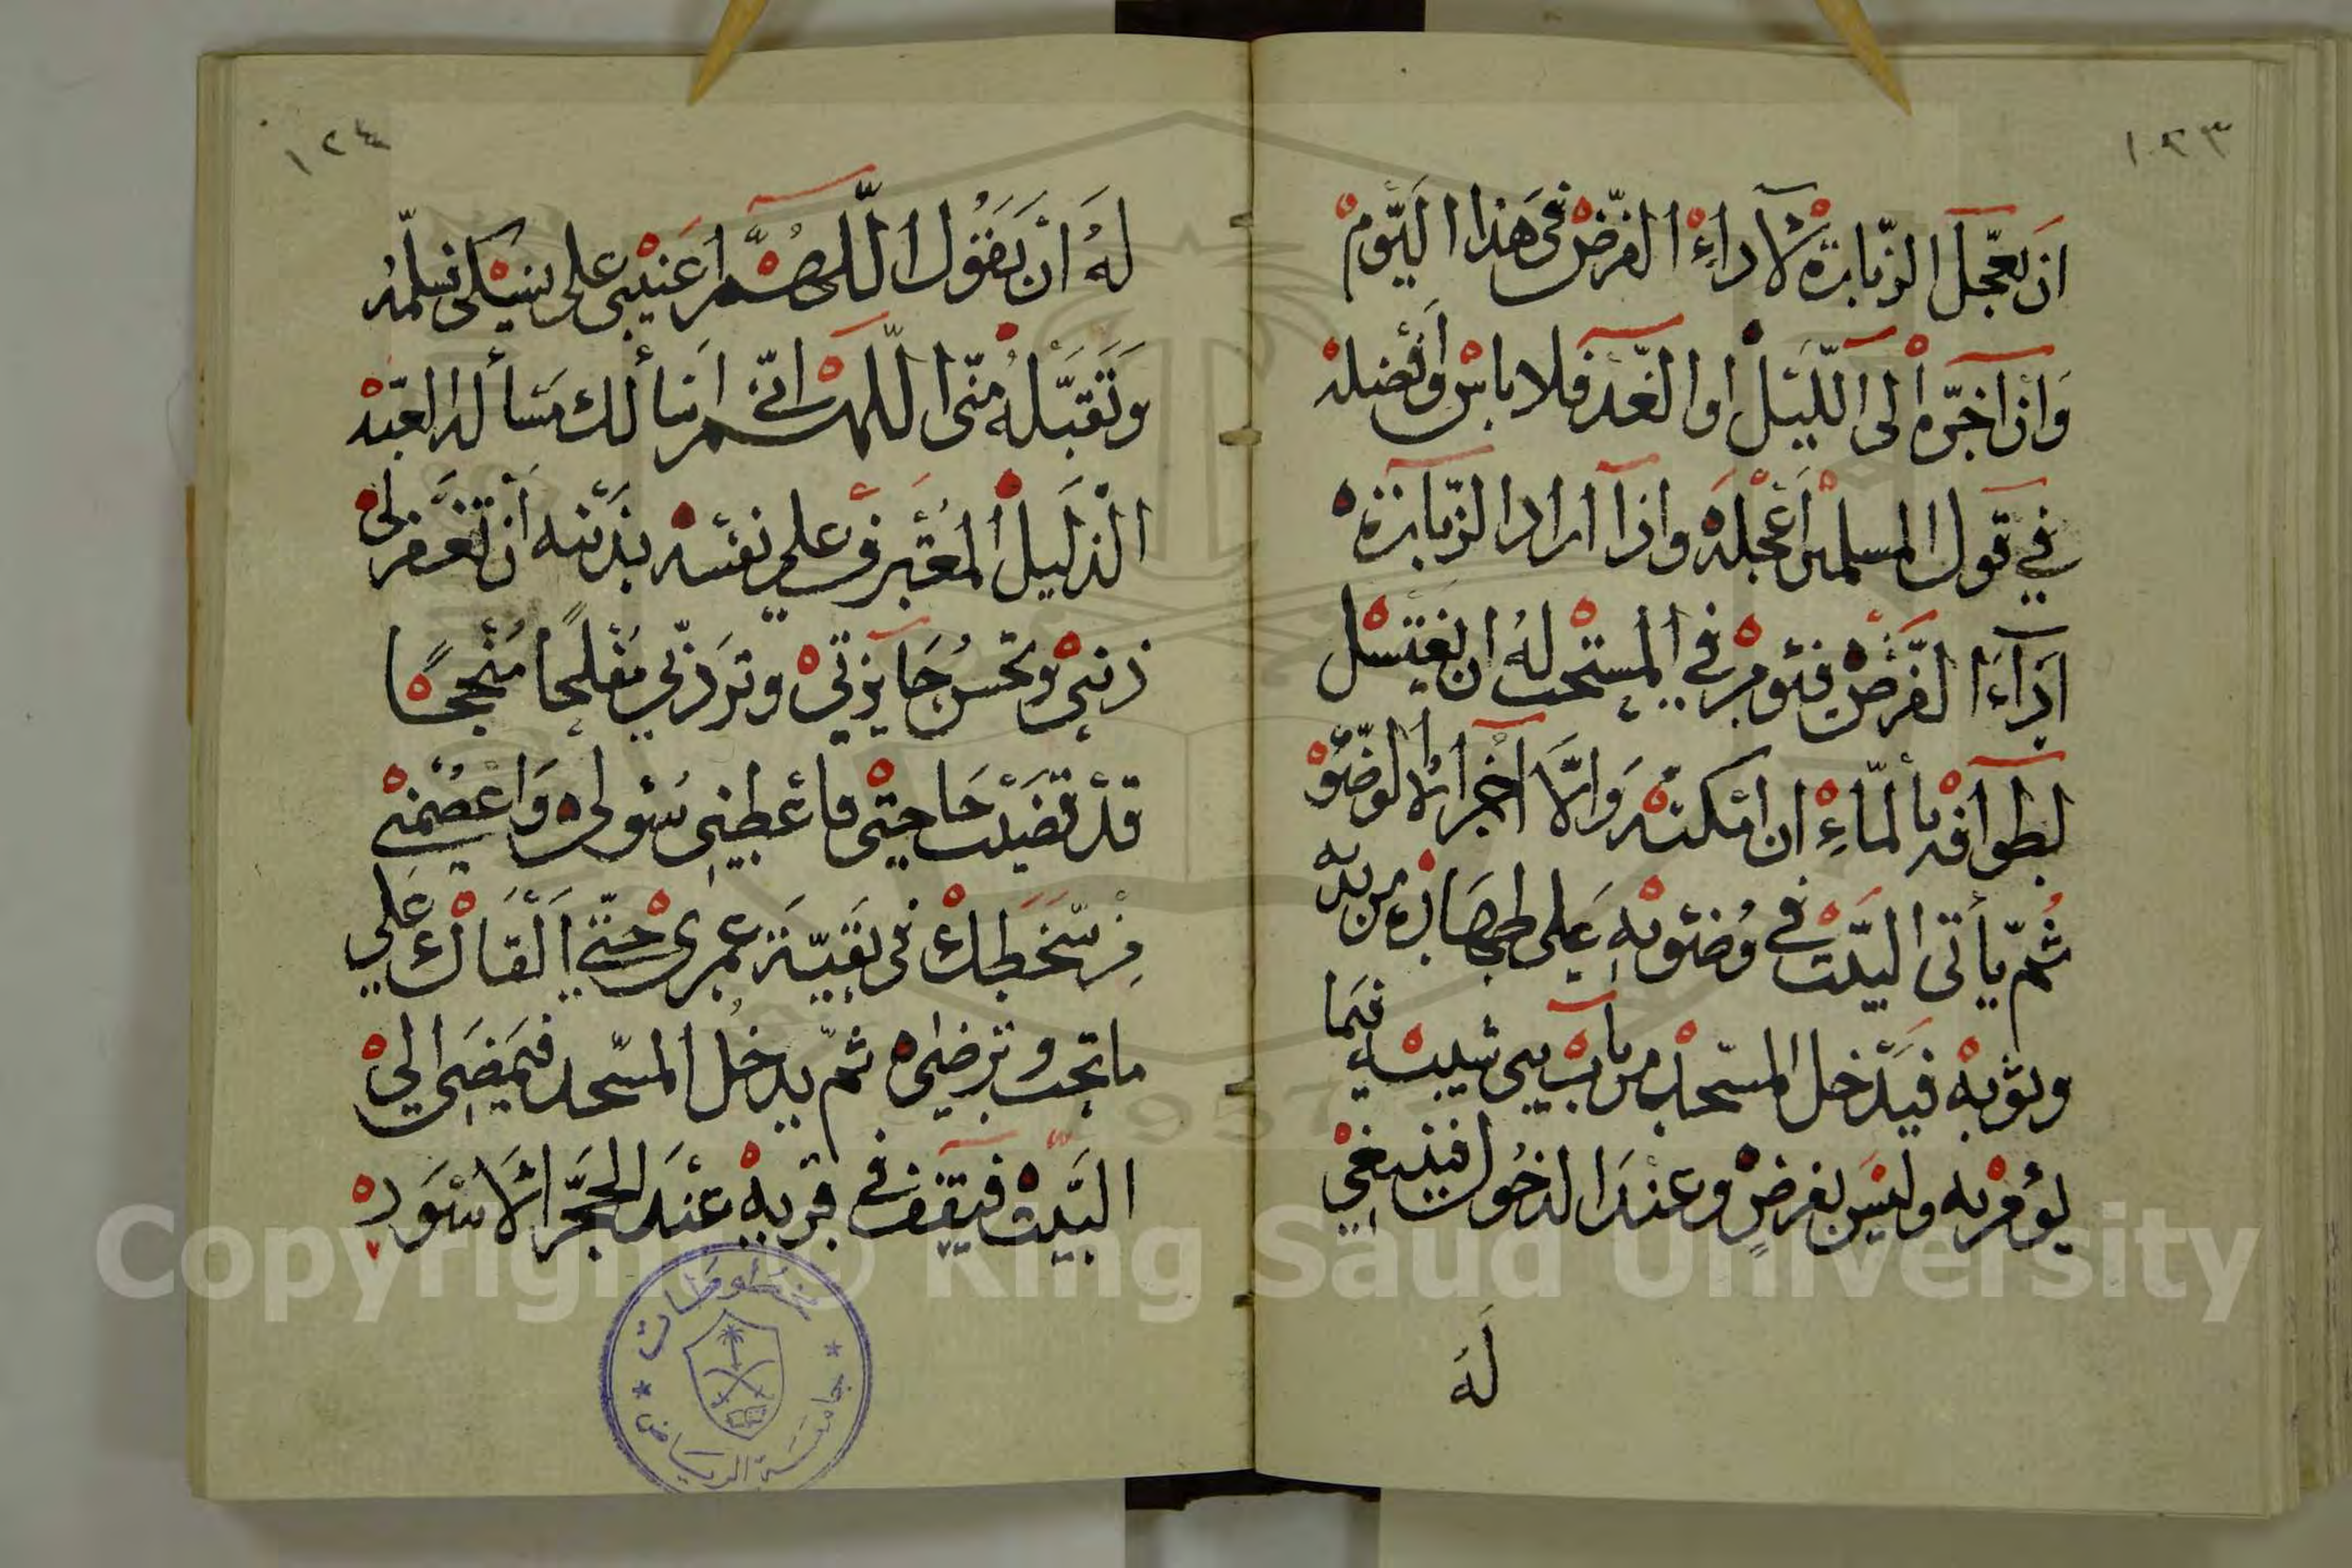 ١٢٣
ان يعجل الزيارة لاداء الفرض فى هذا اليوم
وان اخره الى الليل او الغد فلا باس وافضله
في قول المسلمين اعجله واذا اراد الزيارة
اداء الفرض فيؤمر في المستحب له ان يغتسل
لطوافه بالماء ان امكنه والا اجزاه الوضو
ثم ياتى البيت في وضوئه على طهارة من بدنه
وثوبه فيدخل المسجد من باب بنى شيبه فيما
يؤمر به وليس بفرض وعند الدخول فينبغي
له
١٢٤
له ان يقول اللهم اعنيى على نسكى فسلمه
وتقبله منى اللهم انى اسالك مسألة العبد
الذليل المعترف على نفسه بذنبه ان تغفر لى
ذنبى وتحسن جايزتى وتردني مفلحا منجحا
قد قضيت حاجتى فاعطينى سؤلى واعصمنى
من سخطك فى بقية عمرى حتى القاك على
ما تحب وترضى ثم يدخل المسجد فيمضى الى
البيت فيقف في قربه عند الحجر الاسود
مخطوطات
جامعة الرياض
Copyright © King Saud University
1957